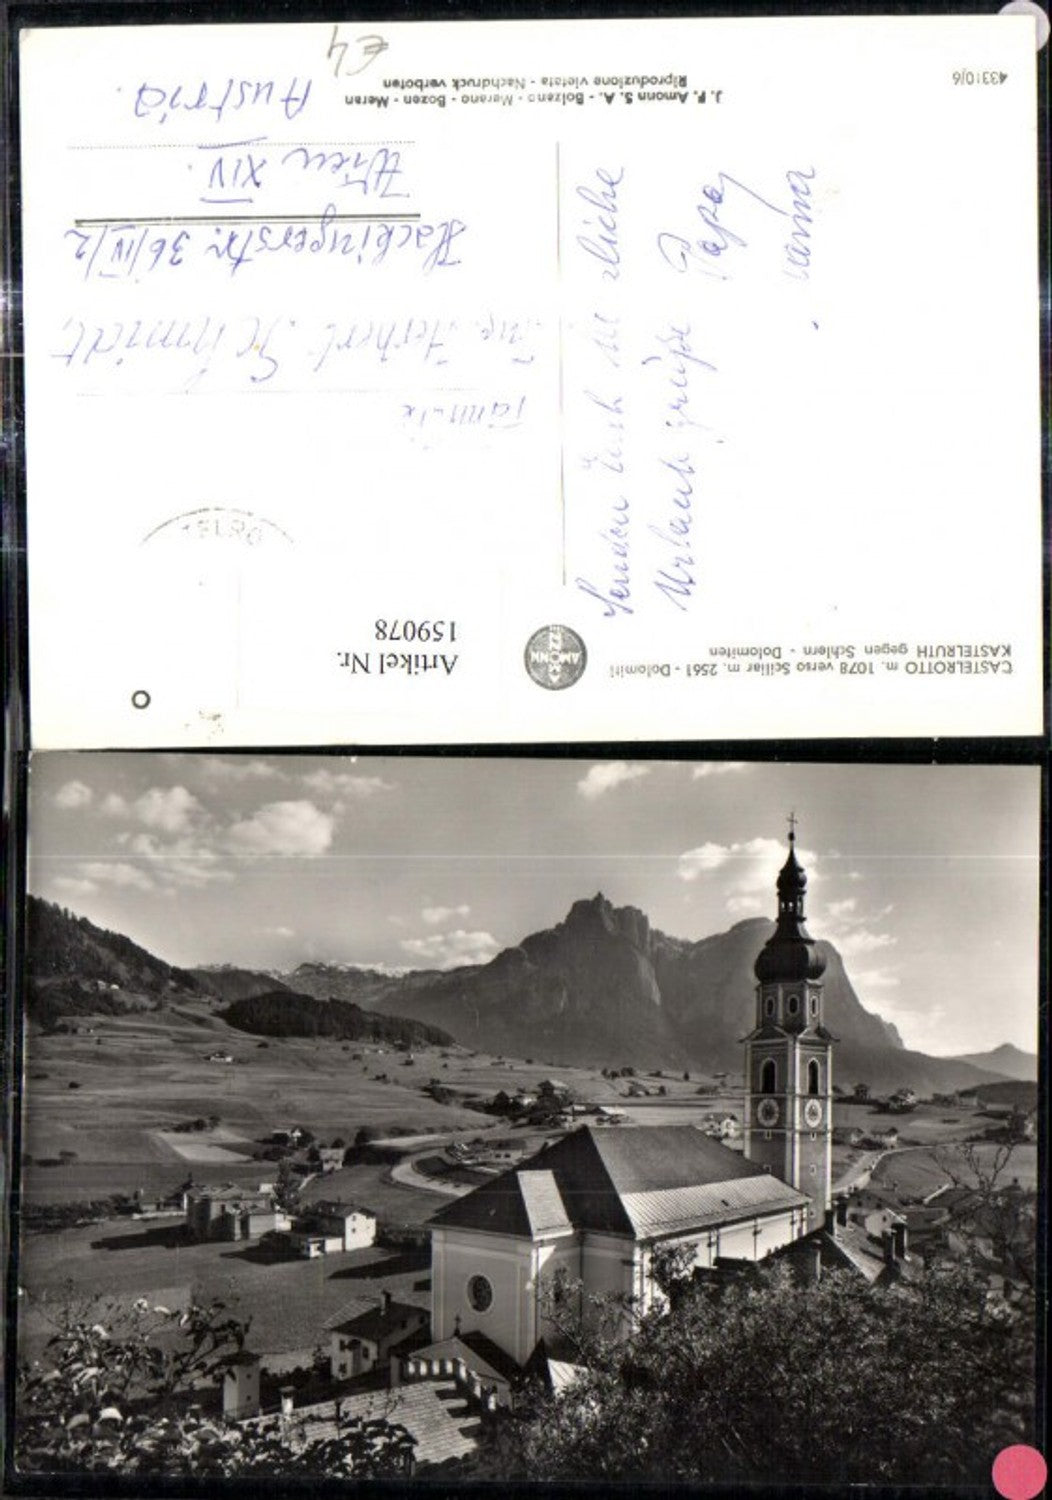 CASTELROTTO m. 1078 verso Sciliar m. 2561 - Dolomiti
KASTELRUTH gegen Schlern - Dolomiten
Artikel Nr.
159078
Senden Euch liebe
Urlaubs grüße Papa
Mama
Familie
Ing. Herbert Schmidt,
Hackingerstr. 36/IV/2
Wien XIV.
Austria.
J. F. Amonn S. A. - Bolzano - Merano - Bozen - Meran
Riproduzione vietata - Nachdruck verboten
43310/6
€4